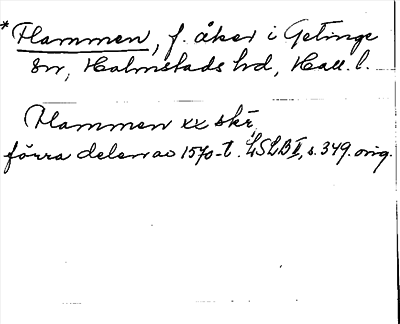 *Hammen, f. åker i Getinge
sn, Halmstads hd, Hall. l.
Hammen xx skr,
förra delen av 1570-t. LSLB II, s. 349. orig.